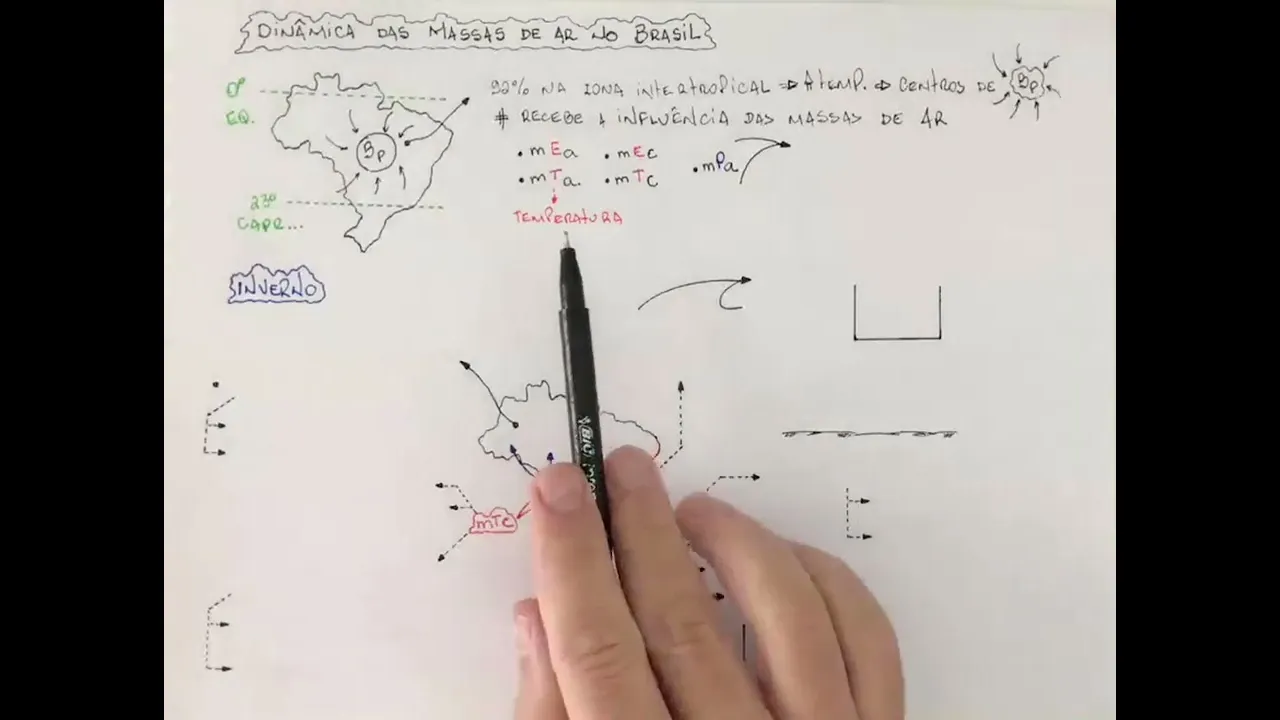 DINÂMICA DAS MASSAS DE AR NO BRASIL
0°
EQ.
Bp
23°
CAPR...
92% NA ZONA INTERTROPICAL ⇒ A TEMP. ⇒ CENTROS DE Bp
# RECEBE A INFLUÊNCIA DAS MASSAS DE AR
• mEa • mEc • mPa
• mTa. • mTc
TEMPERATURA
INVERNO
mTc
BIC intens